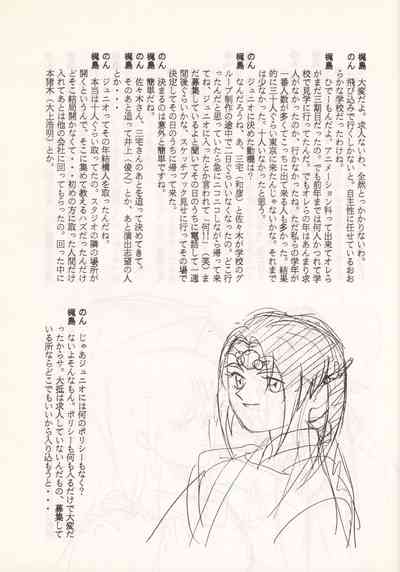 梶島　大変だよ。求人ないわ、全然とっかかりないわ。
のん　飛び込みで行くしかないと。自主性に任せているおお
らかな学校だったわけね。
梶島　ひでーもんだよ。アニメーション科って出来てオレら
がまだ三期目だったの。でも前年までは何人かつれて学
校で見学に行ってたんだって。でもオレらの年はあんまり求
人がなかったのかな、やってなかったね。ただ私らの学年が
一番人数が多くてこっちに出て来る人も多かった。結果
的に三十人ぐらい東京に来たんじゃないかな。それまで
は少なかった。十人いなかったと思う。
のん　ジュニオに決めた動機は？
梶島　なんだろうね、丁度、三宅（和彦）と佐々木が学校のグ
ループ制作の途中で二日ぐらいいなくなったの。どこ行
ったんだと思っていたら急にニコニコしながら帰って来
てね、「ジュニオに入ったとか言われて「何!!」（笑）ま
だ募集しているよと聞いてその日のうちに電話して一週
間後ぐらいかな、スケッチブック見せに行ってその場で
決定してその日のうちに帰って来た。
のん　決まるのは意外と簡単ですね。
梶島　簡単だね。
のん　佐々木さん、三宅さんのあとを追って決めてきて。
梶島　そのあとを追って井上（俊之）とか、あと演出志望の人
とか・・・。
のん　ジュニオってその年結構入を取ったんだね。
梶島　本当は十人ぐらい取ってたの。スタジオの隣の場所が
開くというんで、そこに集めて教えるハズだったんだけ
どそこ結局開かなくて・・・初めの方に取った人間だけ
入れてあとは他の会社に回ってもらったの。回った中に
本猪木（大上浩明）とか。
のん　じゃあジュニオには何のポリシーもなく？
梶島　ないよそんなもん。ポリシーも何も入るだけで大変だ
ったからサ。大抵は求人していないんだもの、募集して
いる所ならどこでもいいから入り込もうと・・・